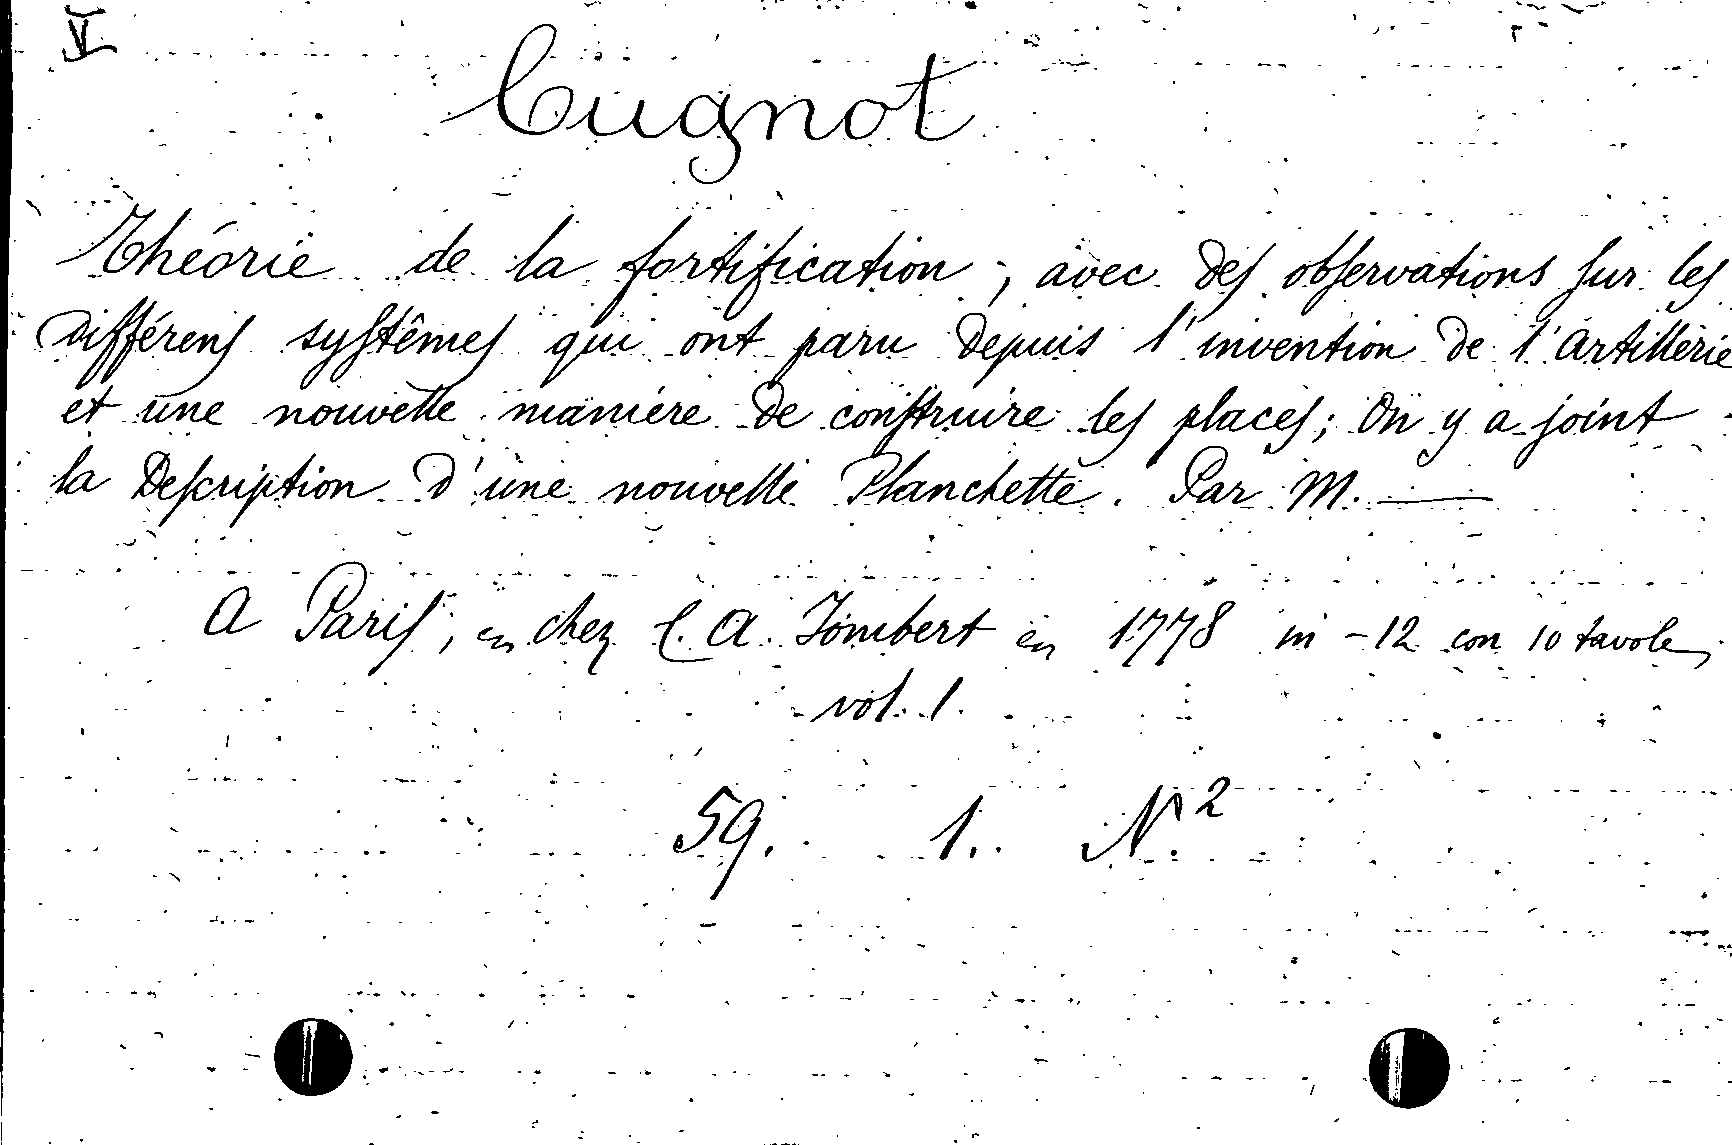 V
Cugnot
Théorie de la fortification, avec des observations sur les
différens systêmes qui ont paru depuis l'invention de l'Artillerie
et une nouvelle maniére de construire les places; On y a joint
la Description d'une nouvelle Planchette. Par M. —
A Paris, en chez C. A. Jombert en 1778 in-12 con 10 tavole,
vol. 1.
59. 1. N.2